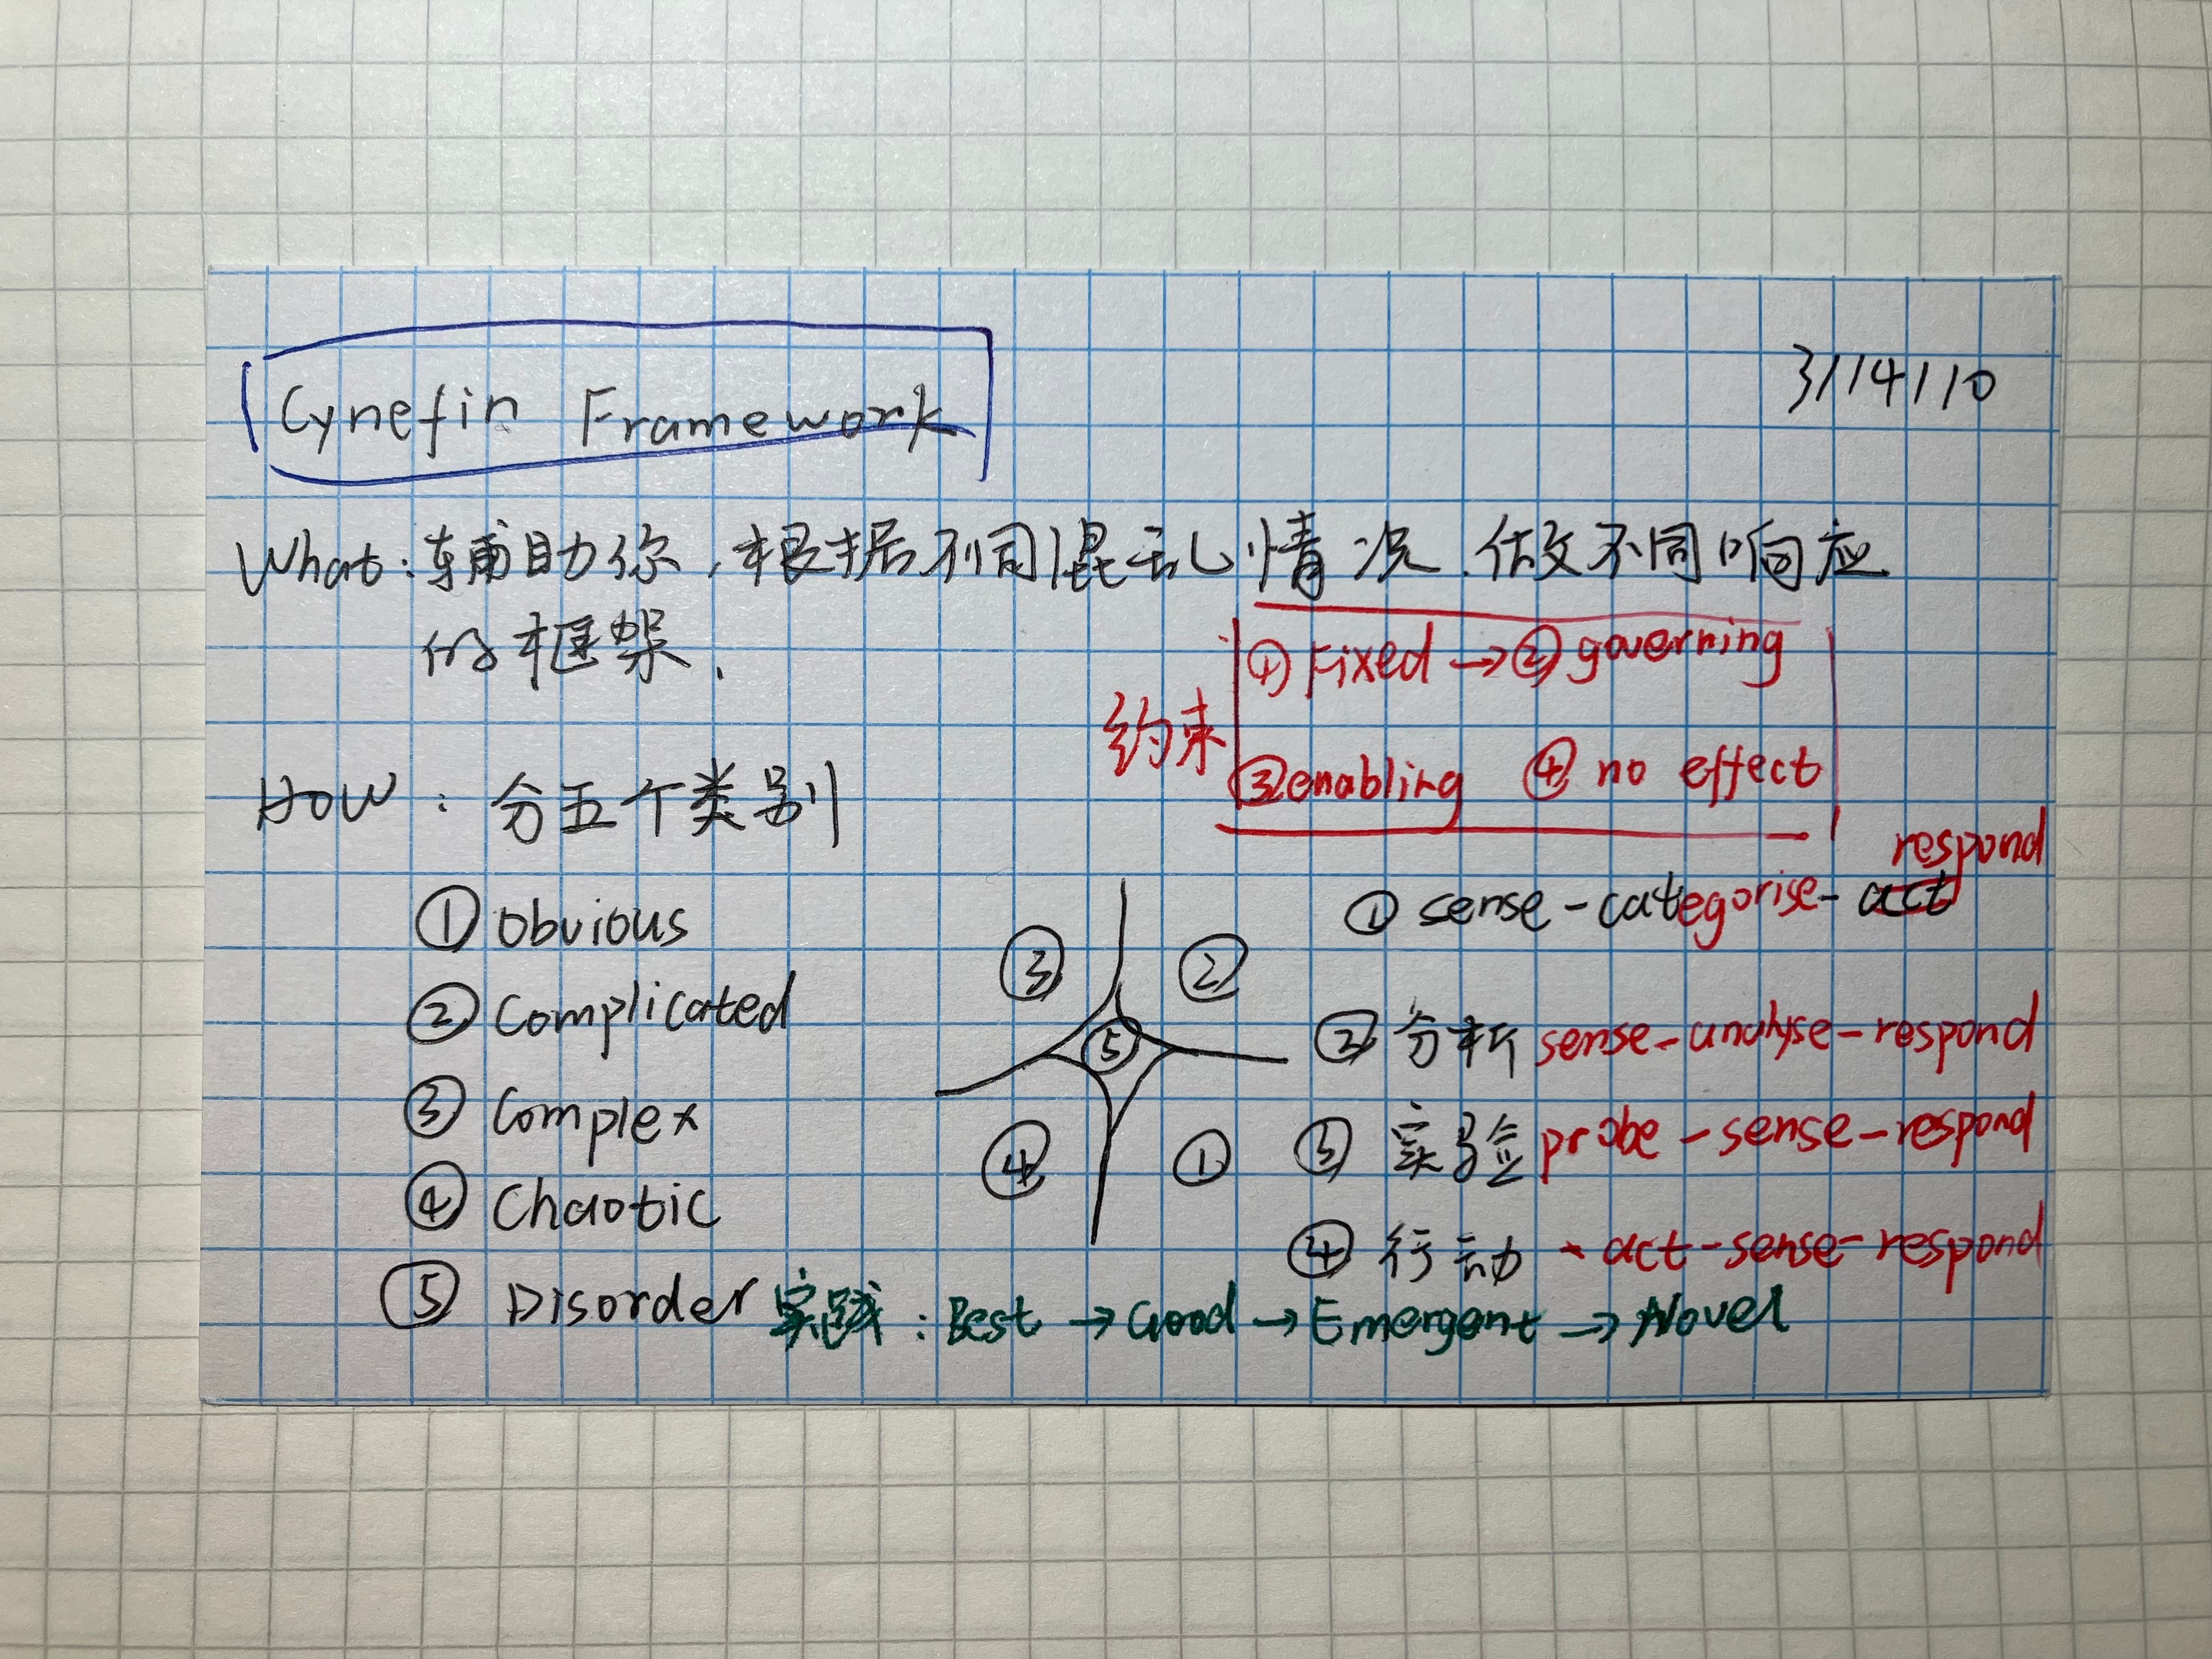 Cynefin Framework
3/14/10
What: 辅助你, 根据不同混乱情况. 做不同响应
的框架.
约束
① Fixed → ② governing
③ enabling ④ no effect
HOW : 分五个类别
① Obvious
② Complicated
③ Complex
④ Chaotic
⑤ Disorder
③ ②
⑤
④ ①
respond
① sense-categorise-act
② 分析 sense-analyse-respond
③ 实验 probe-sense-respond
④ 行动 - act-sense-respond
实践: Best → Good → Emergent → Novel